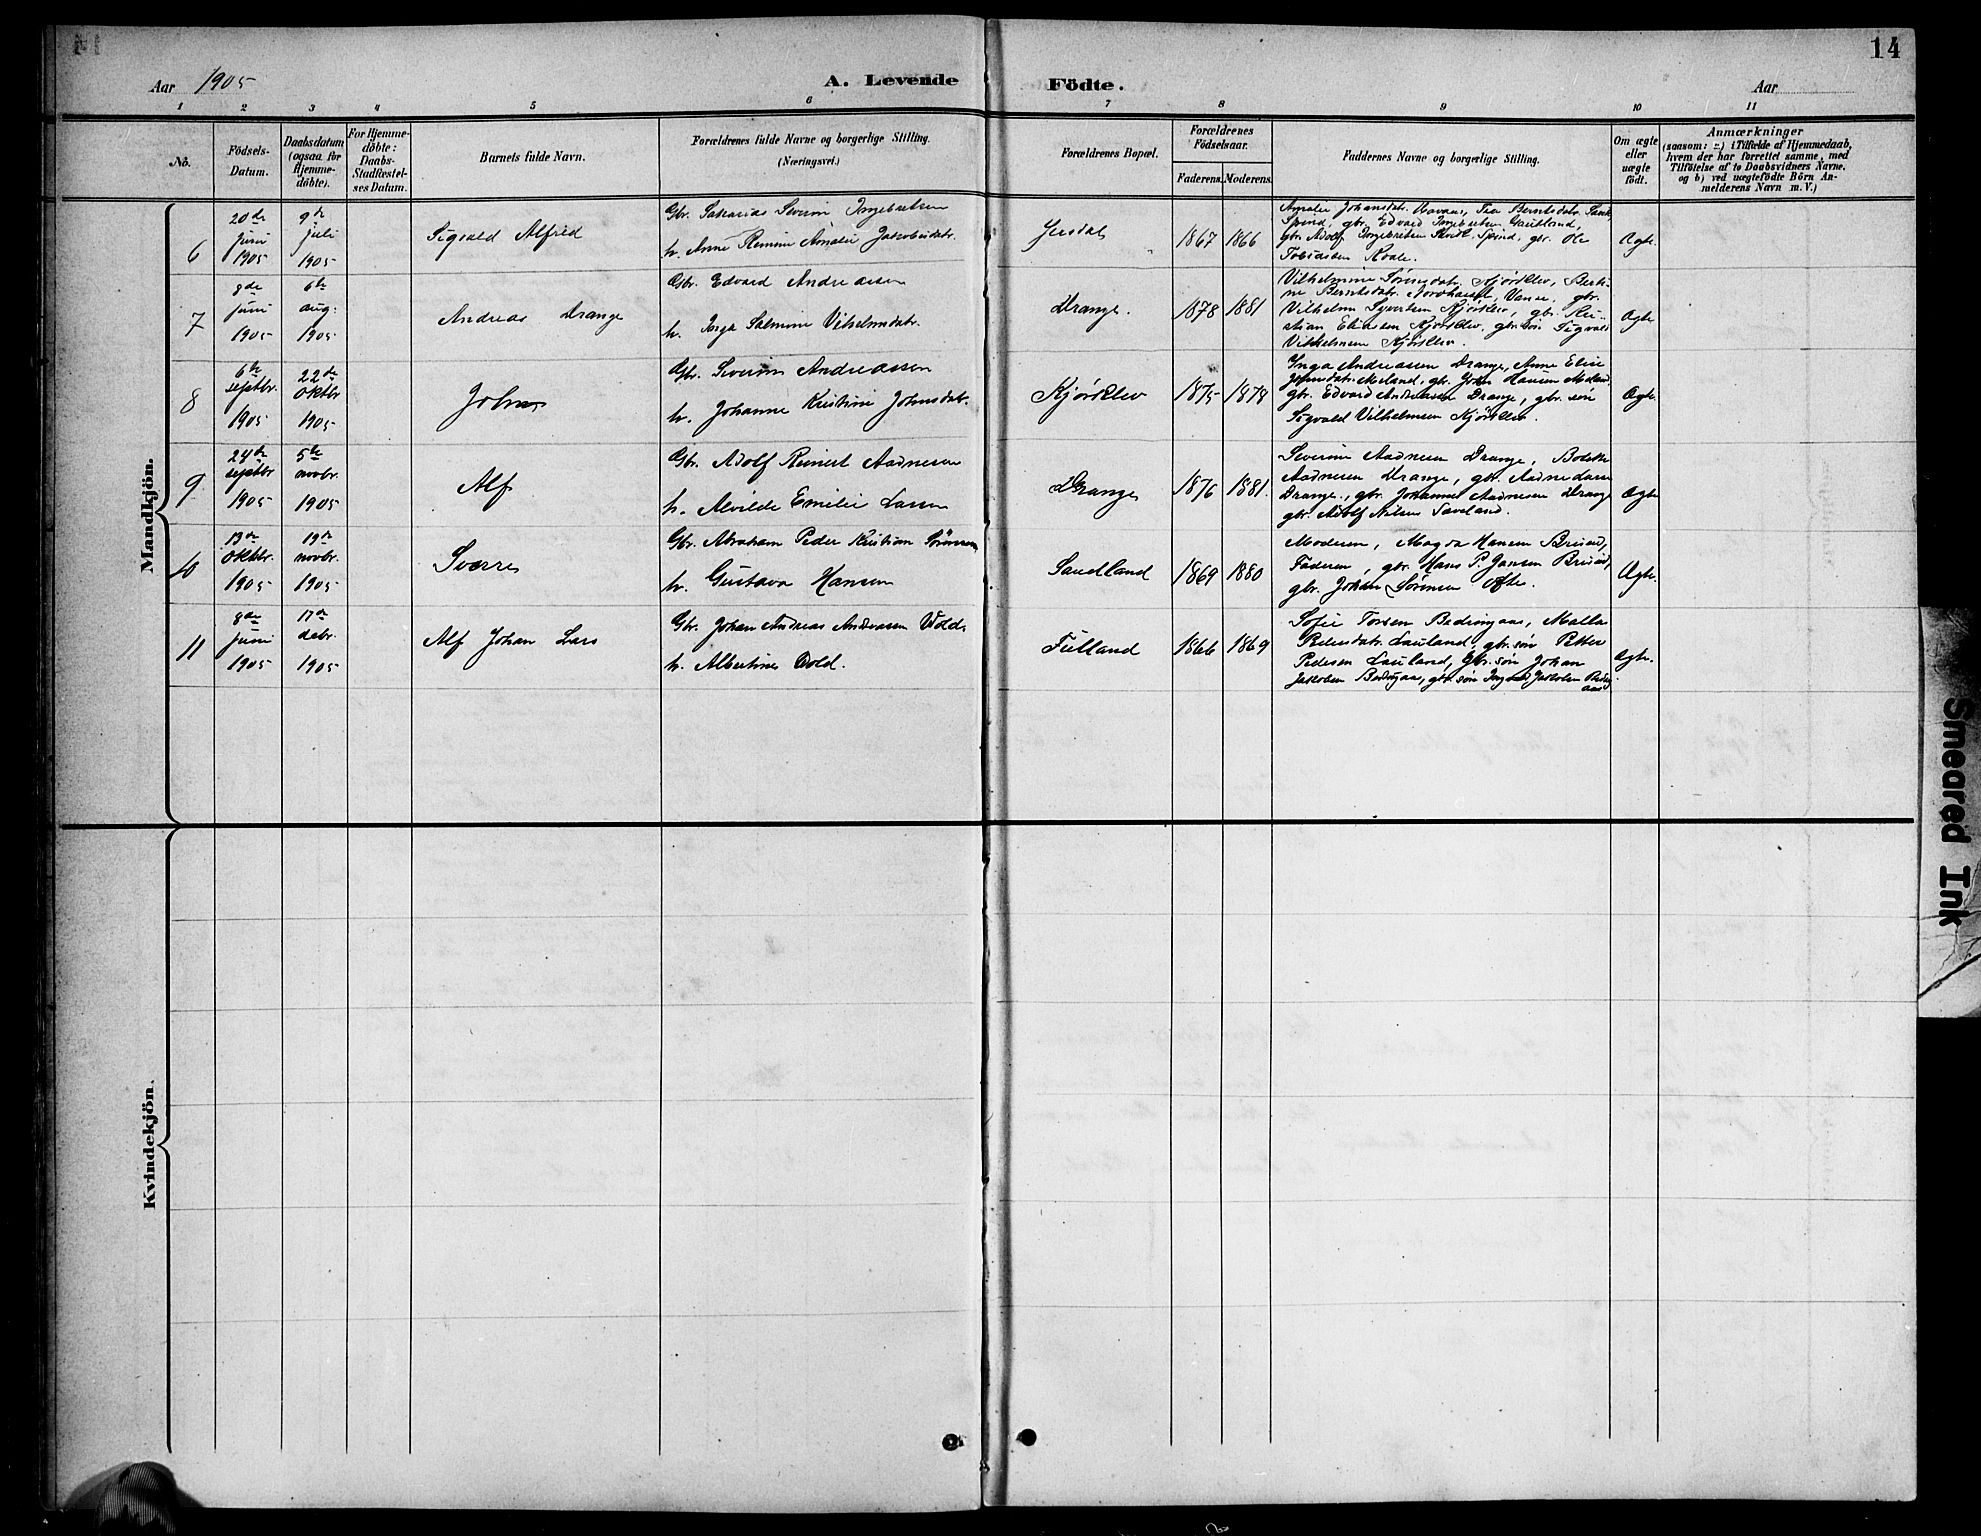 14
Aar 1905
A. Levende
Födte.
Aar
1 2 3 4 5 6 7 8 9 10 11
No.
Födsels-Datum.
Daabsdatum (ogsaa for Hjemme-döbte).
For Hjemme-döbte: Daabs-Stadfæstel-ses Datum.
Barnets fulde Navn.
Forældrenes fulde Navne og borgerlige Stilling.
(Næringsvei.)
Forældrenes Bopæl.
Forældrenes Födselsaar.
Faderens. Moderens.
Faddernes Navne og borgerlige Stilling.
Om ægte eller uægte födt.
Anmærkninger
(saasom: a) i Tilfælde af Hjemmedaab,
hvem der har forrettet samme, med
Tilföielse af to Daabsvidners Navne.
og b) ved uægtefödte Börn An-
melderens Navn m. V.)
Mandkjön.
6
20de juni 1905
9de juli 1905
Sigvald Alfred
Gbr. Sakarias Severin Ingebretsen
h. Anne Remine Amalie Jakobsdatr.
1867 1866
Amalie Johansdatr. Ravaas, Tea Berntsdatr.
Spind, gbr. Edvard Ingebretsen
gbr. Adolf Ingebretsen Spind, gbr. Ole
Tobiasen Kvale.
Ægte
7
8de juni 1905
6te aug. 1905
Andreas Drange
Gbr. Edvard Andreassen
h. Inga Salmine Vilhelmsdatr.
Drange.
1878 1881
Vilhelmine Sørensdatr. Kjørrelev, Berti-
ne Berntsdatr. Vanse, gbr.
Vilhelm Syvertsen Kjørrelev, gbr. Kri-
stian Eliassen Kjørrelev, gbr. søn Sigvald
Vilhelmsen Kjørrelev.
Ægte
8
6te septbr. 1905
22de oktbr 1905
John
Gbr. Severin Andreassen
h. Johanne Kristine Johnsdatr.
Kjørrelev
1875 1878
Inga Andreassen Drange, Anne Elise
Johnsdatr. Meland, gbr. John Hansen Meland,
gbr. Edvard Andreassen Drange, gbr. søn
Sigvald Vilhelmsen Kjørrelev.
Ægte
9
24de septbr 1905
5te novbr. 1905
Alf
Gbr. Adolf Reinert Aadnesen
h. Alvilde Emilie Larsen
Drange
1876 1881.
Severine Aadnesen Drange, Bolette
Aadnesen Drange, gbr. Aadne
Drange, gbr. Johannes Aadnesen Drange
gbr. Adolf Nilsen
Ægte
10
13de oktbr. 1905
19de novbr. 1905
Sverre
Gbr. Abraham Peder Kristian Sørensen
h. Gustava Hansen
Sandland
1869 1880
Moderen, Magda Hansen Briseid,
Faderen, gbr. Hans P. Jansen Briseid,
gbr. Johan Sørensen
Ægte.
11
8de juni 1905
17de debr. 1905
Alf Johan Lars
Gbr. Johan Andreas Andreassen Vold,
h. Albertine Vold.
Fulland
1866 1869
Sofie Torsen Bedringaas, Malla
Pedersdatr. Lauland, gbr. søn Petter
Pedersen Lauland, gbr. søn Johan
Jakobsen Bedringaas, gbr. søn Jakobsen Bedring
aas
Ægte.
Kvindekjön.
Smeared Ink